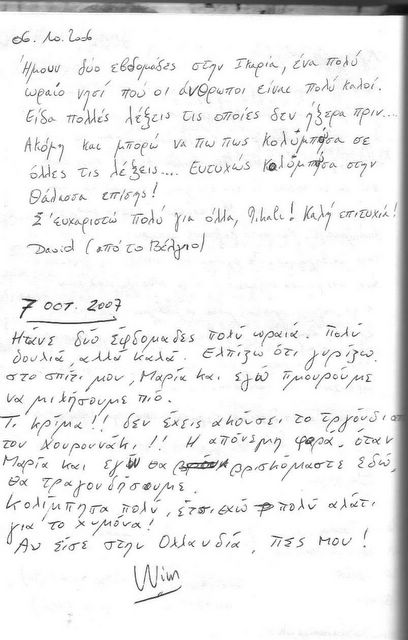 06. 10. 2006
Ήμουν δύο εβδομάδες στην Ικαρία, ένα πολύ
ωραίο νησί πού οι άνθρωποι είναι πολύ καλοί.
Είδα πολλές λέξεις τις οποίες δεν ήξερα πριν...
Ακόμη και μπορώ να πω πως κολύμπησα σε
όλλες τις λέξεις.... Ευτυχώς κολύμπησα στην
θάλασσα επίσης!
Σ'ευχαριστώ πολύ για όλλα, Mihali! Καλή επιτυχία!
David (από το Βέλγιο)
7 OCT. 2007
Ητανε δύο εφδομαδες πολύ ωραιά. Πολύ
δουλιά, αλλά καλά. Ελπίζω ότι γυρίζω
στο σπίτι μου, Μαρία και εγώ πμουρούμε
να μιχήσουμε πιό.
Τι κρίμα!! δεν έχεις ακούσει το τργόνδι από
τον Χουρουνάκι!! Η απόνεμη φορά, όταν
Μαρία και εγώ θα βρισκόμαστε εδώ,
θα τραγουδήσουμε.
Κολίμπησα πολύ, έτσι εχώ πολύ αλάτι
για το χυμόνα!
Αν είσε στην Ολλανδία, πες μου!
Wim